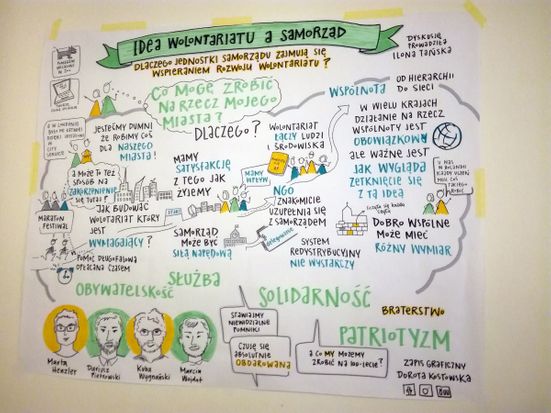 IDEA WOLONTARIATU A SAMORZĄD
DLACZEGO JEDNOSTKI SAMORZĄDU ZAJMUJĄ SIĘ
WSPIERANIEM ROZWOJU WOLONTARIATU?
DYSKUSJĘ
PROWADZIŁA
ILONA TAŃSKA
CO MOGĘ ZROBIĆ
NA RZECZ MOJEGO
MIASTA?
DLACZEGO?
JESTEŚMY DUMNI
ŻE ROBIMY COŚ
DLA NASZEGO
MIASTA!
A MOŻE TO TEŻ
SPOSÓB NA
ZAKORZENIENIE
SIĘ TUTAJ?
MARATON
FESTIWAL
JAK BUDOWAĆ
WOLONTARIAT KTÓRY
JEST
WYMAGAJĄCY?
POMOC DŁUGOFALOWA
OPŁACANA CZASEM
MAMY
SATYSFAKCJĘ
Z TEGO JAK
ŻYJEMY
START
WOLONTARIAT
ŁĄCZY LUDZI
I ŚRODOWISKA
MAMY
WPŁYW
NGO
ZNAKOMICIE
UZUPEŁNIA SIĘ
Z SAMORZĄDEM
SAMORZĄD
MOŻE BYĆ
SIŁĄ NAPĘDOWĄ
SYSTEM
REDYSTRYBUCYJNY
NIE WYSTARCZY
WSPÓLNOTA
OD HIERARCHII
DO SIECI
W WIELU KRAJACH
DZIAŁANIE NA RZECZ
WSPÓLNOTY JEST
OBOWIĄZKOWE
ALE WAŻNE JEST
JAK WYGLĄDA
ZETKNIĘCIE SIĘ
Z TĄ IDEĄ
DOBRO WSPÓLNE
MOŻE MIEĆ
RÓŻNY WYMIAR
OBYWATELSKOŚĆ
SŁUŻBA
SOLIDARNOŚĆ
BRATERSTWO
PATRIOTYZM
STAWIAJMY
NIEWIDZIALNE
POMNIKI
CZUJĘ SIĘ
ABSOLUTNIE
OBDAROWANA
A CO MY MOŻEMY
ZROBIĆ NA 100-LECIE?
Marta
Henzler
Dariusz
Pietrowski
Kuba
Wygnański
Marcin
Wojdat
ZAPIS GRAFICZNY
DOROTA KOSTOWSKA